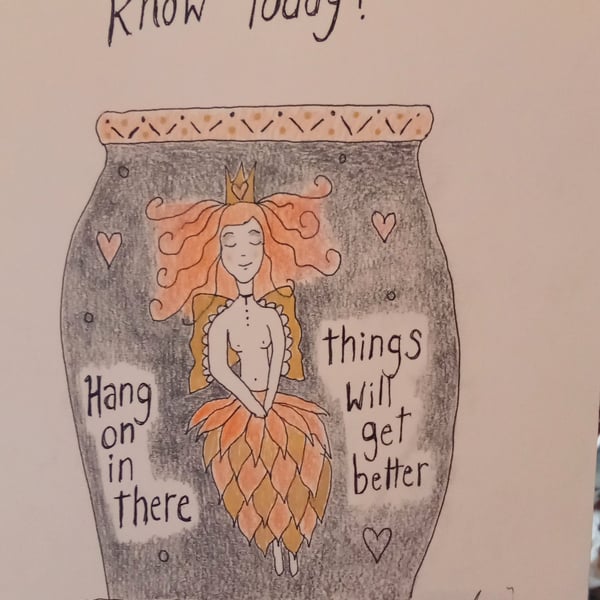 know Today!
Hang
on
in
there
things
will
get
better